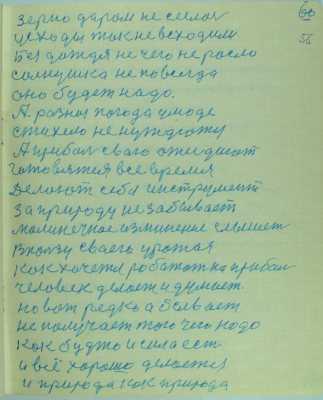 56
зерно даром не сеелося
усходы так не всходили
Без дождя не чего не росло
солнушка не повсегда
оно будет надо.
А разны погода у моде
стихело не нуждюжу
А прибал сваго ожидают
готовятся все время
Делают себя инструмент
за природу не забывает
малинечное изминение слышет
Вползу сваего урожая
Как хочется работат на прибал
человек делает и думает
но вот редко а бывает
не получает того чего надо
как буджо и сила ест
и всё хорошо делается
и природа как природа